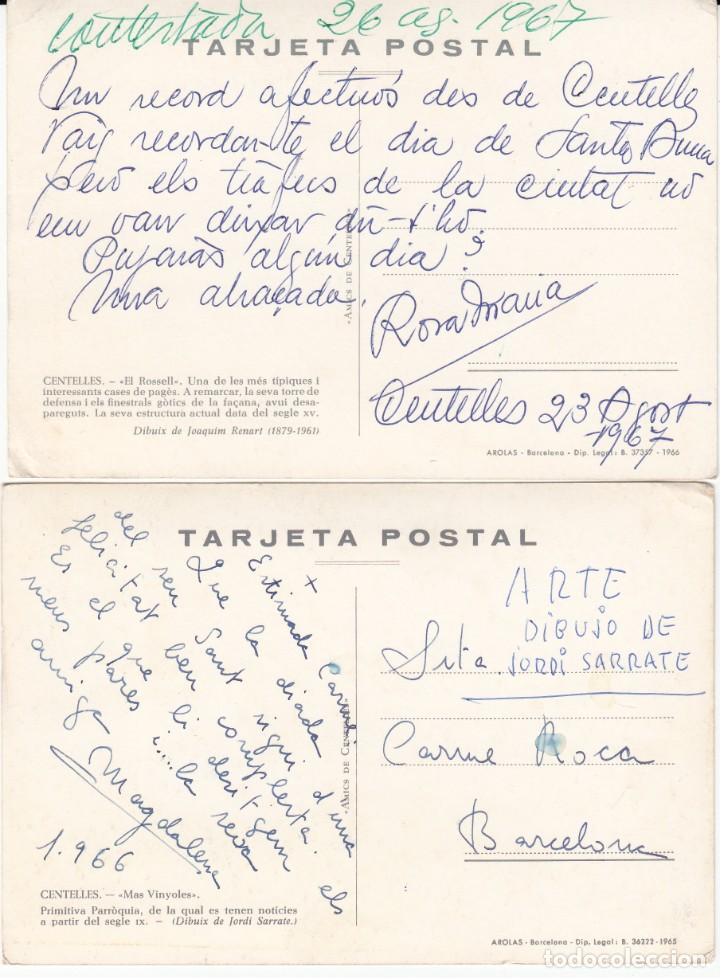 contestada 26 ag. 1967
TARJETA POSTAL
Un record afectuós des de Centelles
Vaig recordar-te el dia de Santa Anna
però els tràfecs de la ciutat no
em van deixar dir-t'ho.
Pujaràs algún dia?
Una abraçada,
Rosa Maria
Centelles 23 Agost
1967
«AMICS DE CENTELLES»
CENTELLES. — «El Rossell». Una de les més típiques i
interessants cases de pagès. A remarcar, la seva torre de
defensa i els finestrals gòtics de la façana, avui desa-
pareguts. La seva estructura actual data del segle XV.
Dibuix de Joaquim Renart (1879-1961)
AROLAS - Barcelona - Dip. Legal: B. 37357 - 1966
TARJETA POSTAL
+
Estimada Carme
Que la diada
del seu Sant sigui d'una
felicitat ben complerta.
Es el que li desitgem els
meus pares i... la seva
amiga
Magdalena
1.966
ARTE
DIBUJO DE
JORDI SARRATE
Srta.
Carme Roca
Barcelona
«AMICS DE CENTELLES»
CENTELLES. — «Mas Vinyoles».
Primitiva Parròquia, de la qual es tenen notícies
a partir del segle IX. — (Dibuix de Jordi Sarrate.)
AROLAS - Barcelona - Dip. Legal: B. 36222 - 1965
todocoleccion